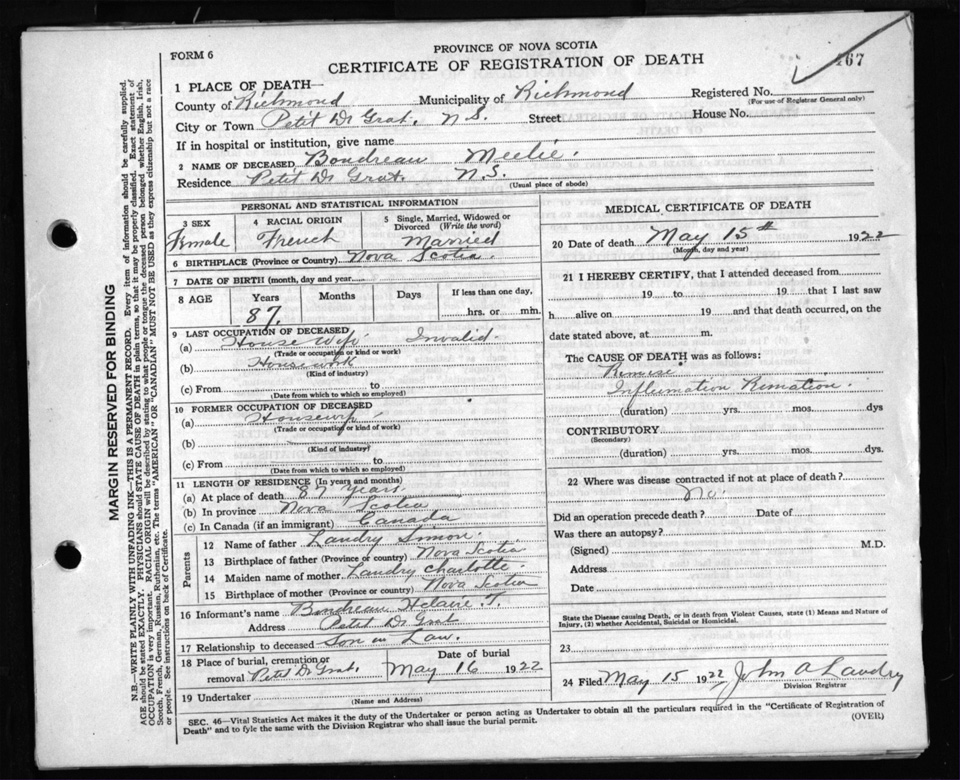 PROVINCE OF NOVA SCOTIA
FORM 6
CERTIFICATE OF REGISTRATION OF DEATH
467
1 PLACE OF DEATH—
County of Richmond Municipality of Richmond Registered No.
(For use of Registrar General only)
City or Town Petit De Grat, N.S. Street House No.
If in hospital or institution, give name
2 NAME OF DECEASED Boudreau Meelie.
Residence Petit De Grat. N.S.
(Usual place of abode)
PERSONAL AND STATISTICAL INFORMATION
3 SEX Female
4 RACIAL ORIGIN French
5 Single, Married, Widowed or Divorced (Write the word) Married
6 BIRTHPLACE (Province or Country) Nova Scotia.
7 DATE OF BIRTH (month, day and year)
8 AGE Years 87, Months Days If less than one day, hrs. or min.
9 LAST OCCUPATION OF DECEASED
(a) House Wife. Invalid.
(Trade or occupation or kind of work)
(b) Housework
(Kind of industry)
(c) From to
(Date from which to which so employed)
10 FORMER OCCUPATION OF DECEASED
(a) Housewife
(Trade or occupation or kind of work)
(b)
(Kind of industry)
(c) From to
(Date from which to which so employed)
11 LENGTH OF RESIDENCE (In years and months)
(a) At place of death 87 Years
(b) In province Nova Scotia
(c) In Canada (if an immigrant) Canada
Parents
12 Name of father Landry Simon.
13 Birthplace of father (Province or country) Nova Scotia
14 Maiden name of mother Landry Charlotte.
15 Birthplace of mother (Province or country) Nova Scotia
16 Informant's name Boudreau Helaire T.
Address Petit De Grat
17 Relationship to deceased Son in Law.
18 Place of burial, cremation or removal Petit De Grat. Date of burial May 16 1922
19 Undertaker
(Name and Address)
MEDICAL CERTIFICATE OF DEATH
20 Date of death May 15th 1922
(Month, day and year)
21 I HEREBY CERTIFY, that I attended deceased from
19 to 19 that I last saw
h alive on 19 and that death occurred, on the
date stated above, at m.
The CAUSE OF DEATH was as follows:
Influmation
(duration) yrs. mos. dys
CONTRIBUTORY
(Secondary)
(duration) yrs. mos. dys
22 Where was disease contracted if not at place of death?
No.
Did an operation precede death? Date of
Was there an autopsy?
(Signed) M.D.
Address
Date
State the Disease causing Death, or in death from Violent Causes, state (1) Means and Nature of
Injury, (2) whether Accidental, Suicidal or Homicidal.
23
24 Filed May 15 1922 John A Landry
Division Registrar
SEC. 46—Vital Statistics Act makes it the duty of the Undertaker or person acting as Undertaker to obtain all the particulars required in the "Certificate of Registration of
Death" and to fyle the same with the Division Registrar who shall issue the burial permit. (OVER)
MARGIN RESERVED FOR BINDING
N.B.—WRITE PLAINLY WITH UNFADING INK—THIS IS A PERMANENT RECORD. Every item of information should be carefully supplied.
AGE should be stated EXACTLY. PHYSICIANS should STATE CAUSE OF DEATH in plain terms, so that it may be properly classified. Exact statement of
OCCUPATION is very important. RACIAL ORIGIN will be described by stating to what people or tongue the deceased person belonged whether English, Irish,
Scotch, French, German, Russian, Ruthenian, etc. The terms "AMERICAN" OR "CANADIAN" MUST NOT BE USED as they express citizenship but not a race
or people. See instructions on back of Certificate.